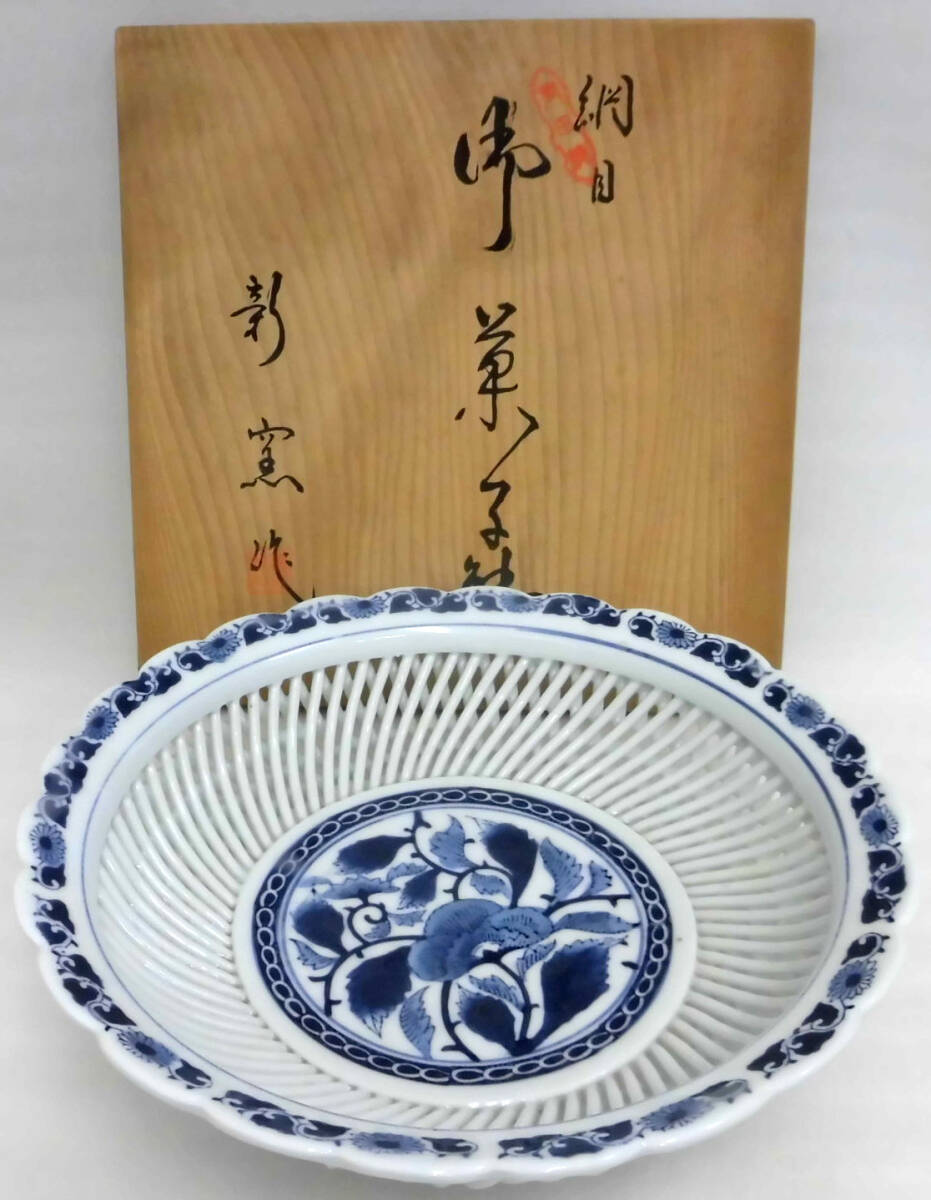 網目
御菓子鉢
新窯作